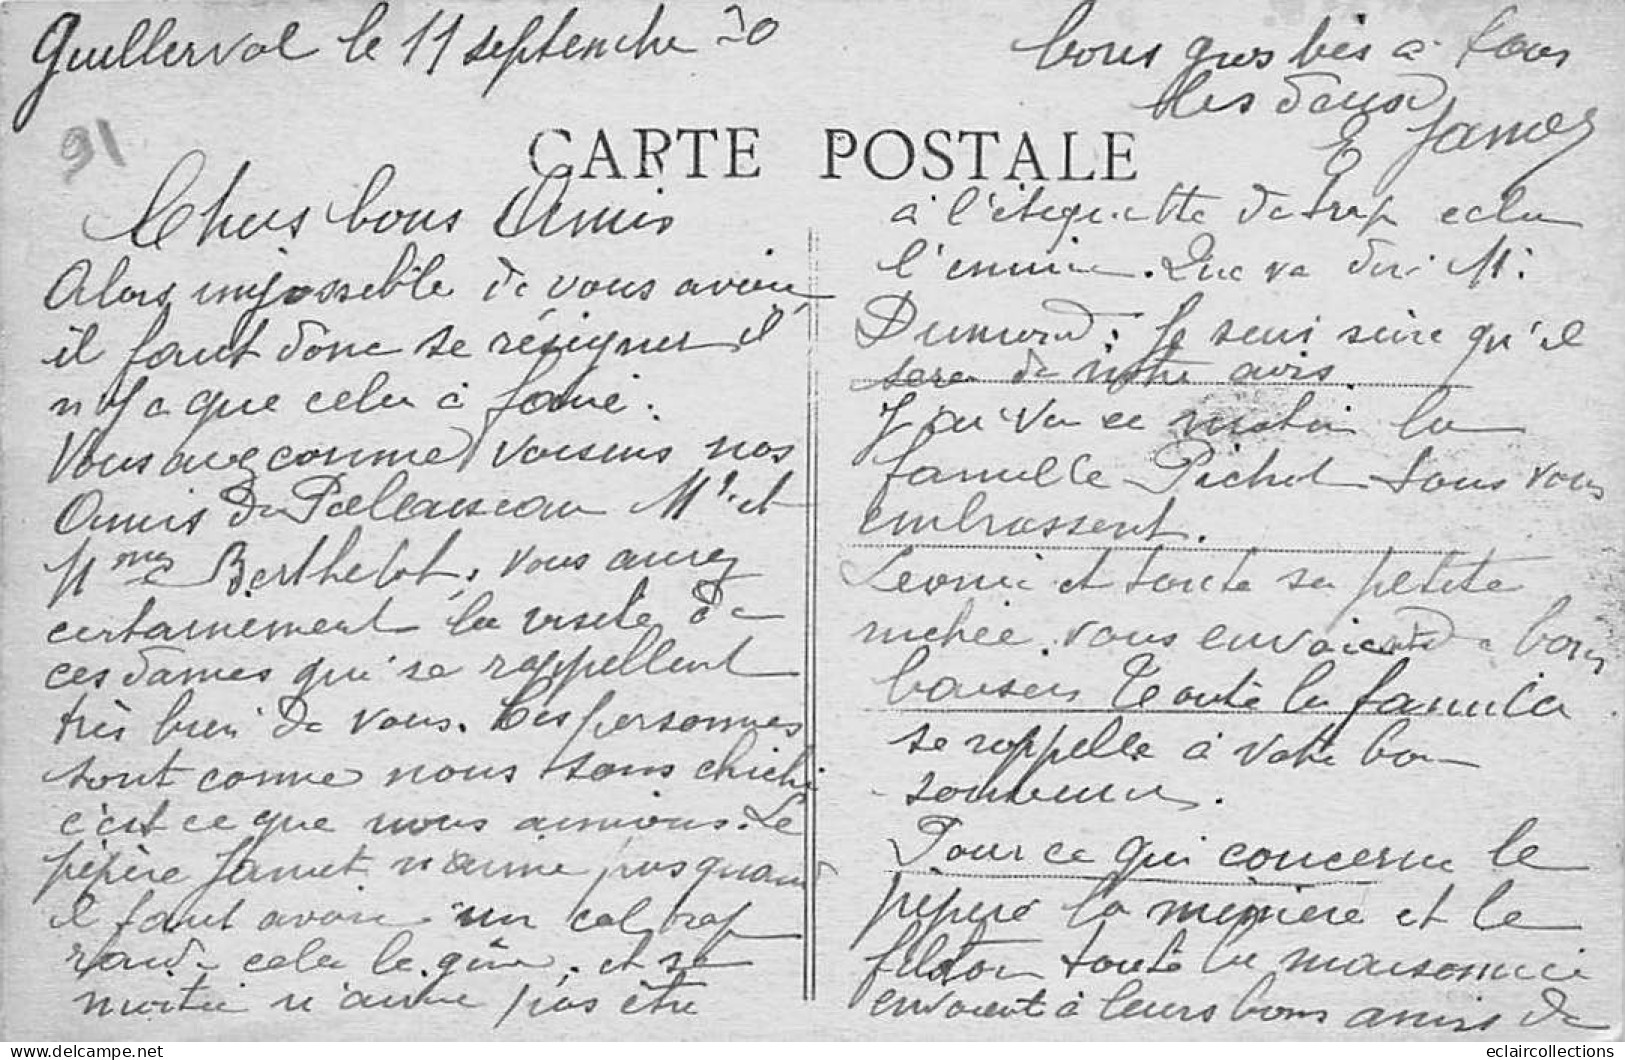 Guillerval le 11 septembre 30
91
CARTE POSTALE
Chers bons Amis
Alors impossible de vous avoir
il faut donc se résigner il
n'y a que cela à faire.
Vous avez comme voisins nos
Amis de Palaiseau Mr et
Mme Berthelot, vous aurez
certainement la visite de
ces dames qui se rappellent
très bien de vous. Ces personnes
sont comme nous sans chichi
c'est ce que nous aimons. Le
pépère Jamet n'aime pas quand
il faut avoir un col trop
raide cela le gêne. et sa
moitié n'aime pas être
à l'étiquette de trop cela
l'ennuie. Que va dire Mr
Dumond; Je suis sûre qu'il
sera de notre avis.
J'ai vu ce matin la
famille Pichot tous vous
embrassent.
Leonie et toute sa petite
nichée vous envoient de bons
baisers Toute la famille
se rappelle à votre bon
souvenir.
Pour ce qui concerne le
pépère la mémère et le
fiston toute la maisonnée
envoient à leurs bons amis de
bons gros bis à tous
les deux
E Jamet
eclaircollections